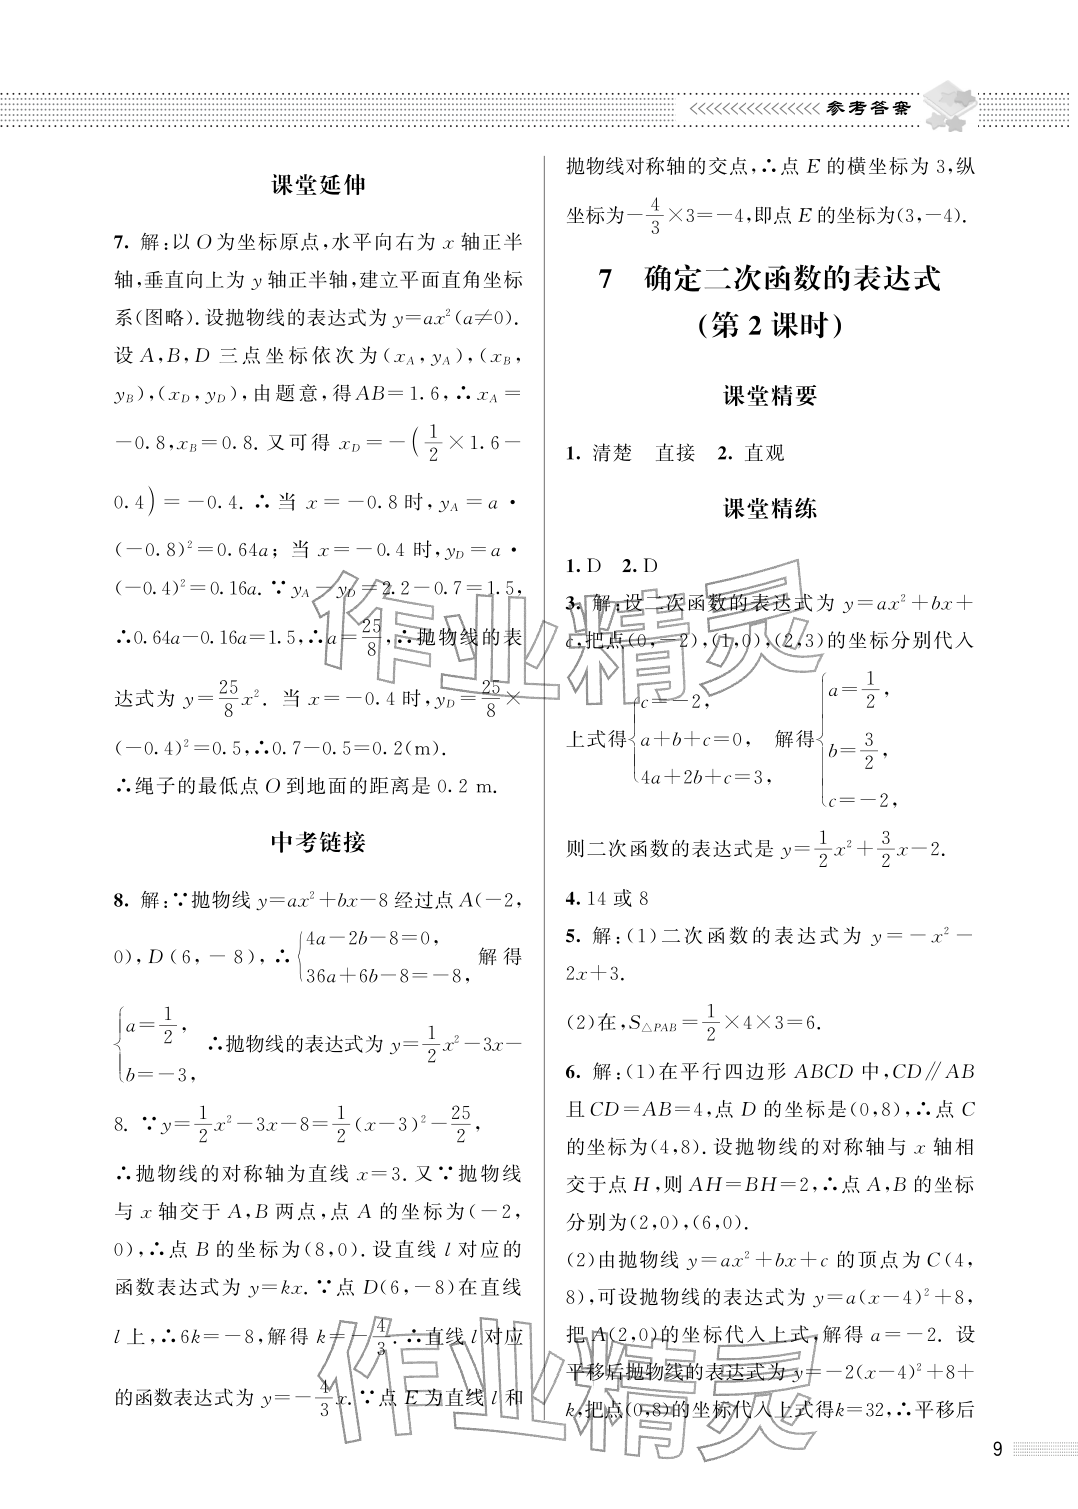 参考答案
课堂延伸
7. 解:以O为坐标原点,水平向右为 x 轴正半
轴,垂直向上为 y 轴正半轴,建立平面直角坐标
系(图略).设抛物线的表达式为 y=ax²(a≠0).
设 A,B,D 三点坐标依次为(x_A,y_A),(x_B,
y_B),(x_D,y_D),由题意,得AB=1.6,∴x_A=
-0.8,x_B=0.8.又可得 x_D=-(1/2×1.6-
0.4)=-0.4.∴当 x=-0.8时,y_A=a·
(-0.8)²=0.64a;当 x=-0.4 时,y_D=a·
(-0.4)²=0.16a.∵y_A-y_D=2.2-0.7=1.5,
∴0.64a-0.16a=1.5,∴a=25/8,∴抛物线的表
达式为 y=25/8x². 当 x=-0.4时,y_D=25/8×
(-0.4)²=0.5,∴0.7-0.5=0.2(m).
∴绳子的最低点O到地面的距离是 0.2 m.
中考链接
8. 解:∵抛物线 y=ax²+bx-8经过点A(-2,
0),D(6,-8),∴{4a-2b-8=0, 36a+6b-8=-8, 解得
{a=1/2, b=-3, ∴抛物线的表达式为 y=1/2x²-3x-
8. ∵y=1/2x²-3x-8=1/2(x-3)²-25/2,
∴抛物线的对称轴为直线 x=3.又∵抛物线
与 x 轴交于 A,B 两点,点 A 的坐标为(-2,
0),∴点 B 的坐标为(8,0).设直线 l 对应的
函数表达式为 y=kx.∵点 D(6,-8)在直线
l上,∴6k=-8,解得 k=-4/3.∴直线 l 对应
的函数表达式为 y=-4/3x.∵点 E 为直线 l 和
抛物线对称轴的交点,∴点 E 的横坐标为 3,纵
坐标为-4/3×3=-4,即点E的坐标为(3,-4).
7 确定二次函数的表达式
(第2课时)
课堂精要
1. 清楚 直接 2. 直观
课堂精练
1. D 2. D
3. 解:设二次函数的表达式为 y=ax²+bx+
c,把点(0,-2),(1,0),(2,3)的坐标分别代入
上式得{c=-2, a+b+c=0, 4a+2b+c=3, 解得{a=1/2, b=3/2, c=-2,
则二次函数的表达式是 y=1/2x²+3/2x-2.
4. 14 或 8
5. 解:(1)二次函数的表达式为 y=-x²-
2x+3.
(2)在,S△PAB=1/2×4×3=6.
6. 解:(1)在平行四边形 ABCD 中,CD∥AB
且CD=AB=4,点 D 的坐标是(0,8),∴点 C
的坐标为(4,8).设抛物线的对称轴与 x 轴相
交于点 H,则 AH=BH=2,∴点 A,B 的坐标
分别为(2,0),(6,0).
(2)由抛物线 y=ax²+bx+c 的顶点为 C(4,
8),可设抛物线的表达式为 y=a(x-4)²+8,
把 A(2,0)的坐标代入上式,解得 a=-2. 设
平移后抛物线的表达式为 y=-2(x-4)²+8+
k,把点(0,8)的坐标代入上式得k=32,∴平移后
作业精灵
作业精灵
9